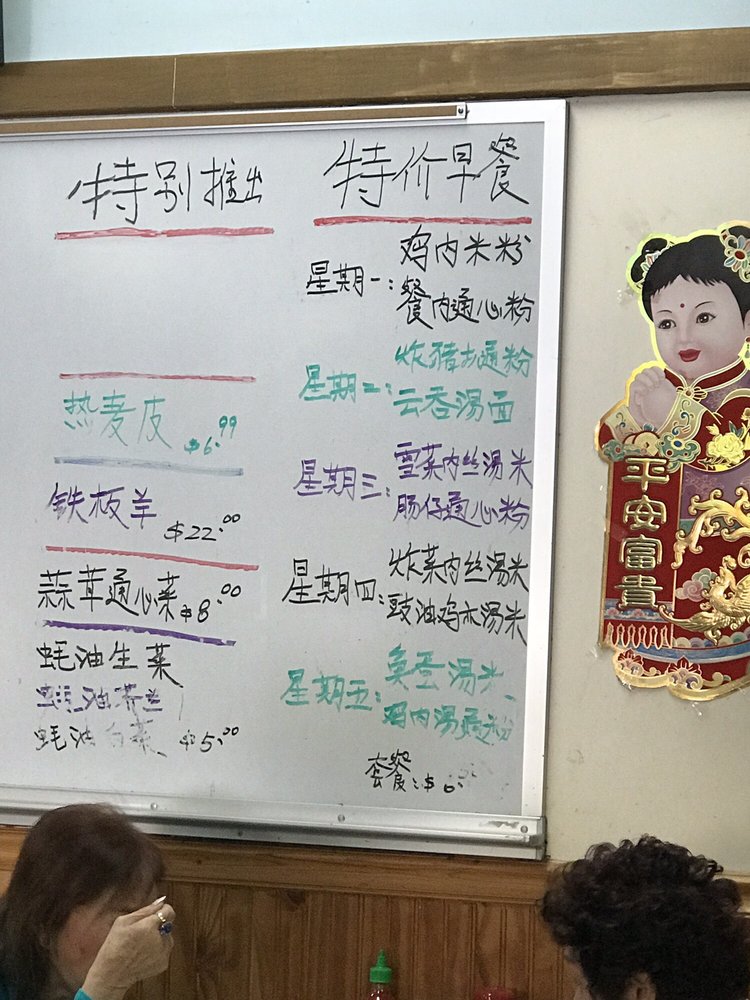 特别推出
热麦皮 $6.99
铁板羊 $22.00
蒜茸通心菜 $8.00
蚝油生菜
蚝油芥兰
蚝油白菜 $5.00
特价早餐
星期一: 鸡内米粉
餐内通心粉
星期二: 炸豬扒通粉
云吞汤面
星期三: 雪菜内丝汤米
肠仔通心粉
星期四: 炸菜内丝汤米
豉油鸡木汤米
星期五: 鱼蛋汤米、
鸡内汤通粉
套餐: $6.
平安富貴